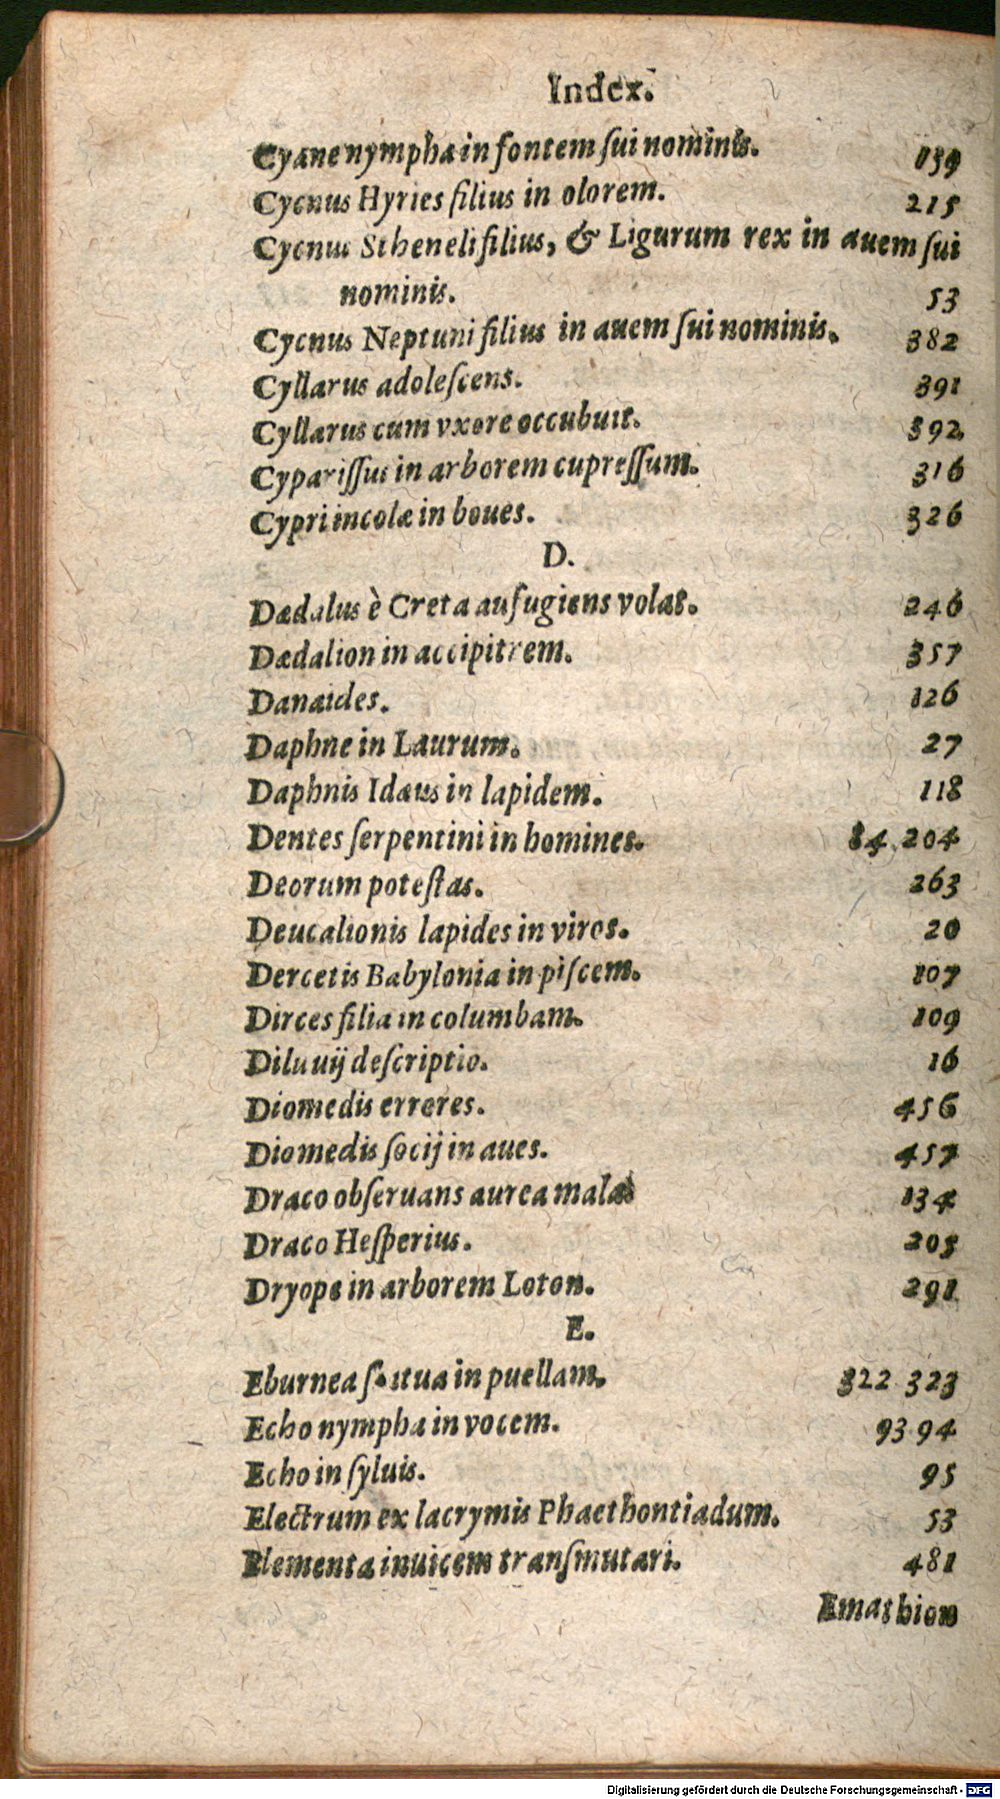 Index.
Cyane nympha in fontem ſui nominis. 159
Cycnus Hyries filius in olorem. 215
Cycnus Stheneli filius, & Ligurum rex in auem ſui
nominis. 53
Cycnus Neptuni filius in auem ſui nominis. 382
Cyllarus adoleſcens. 391
Cyllarus cum vxore occubuit. 392
Cypariſſus in arborem cupreſſum. 316
Cypri incolæ in boues. 326
D.
Dædalus è Creta aufugiens volat. 246
Dædalion in accipitrem. 357
Danaides. 126
Daphne in Laurum. 27
Daphnis Idæus in lapidem. 118
Dentes ſerpentini in homines. 84. 204
Deorum poteſtas. 263
Deucalionis lapides in viros. 20
Dercetis Babylonia in piſcem. 107
Dirces filia in columbam. 109
Diluuij deſcriptio. 16
Diomedis errores. 456
Diomedis ſocij in aues. 457
Draco obſeruans aurea mala 134
Draco Heſperius. 205
Dryope in arborem Loton. 291
E.
Eburnea ſtatua in puellam. 322 323
Echo nympha in vocem. 93 94
Echo in ſyluis. 95
Electrum ex lacrymis Phaethontiadum. 53
Elementa inuicem tranſmutari. 481
Emathion
Digitalisierung gefördert durch die Deutsche Forschungsgemeinschaft - DFG